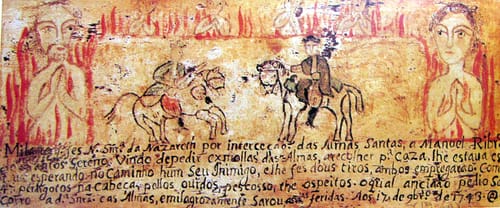 Milagre q̃ fes N. Snr̃a da Nazareth por interceção das Almas Santas, a Manoel Ribrº
Sereno. Vindo de pedir esmollas das Almas, a recolher pª Caza, lhe estava o
us esperando no Caminho hum Seu Inimigo, e lhe fes dous tiros, ambos empregarão Com
4 perdigotos na Cabeça, pellos ouvidos, pescosso, the os peitos. o qual anciado pedio So
Corro da Snrª e as Almas, e milagrozamente Sarou das feridas. Aos 17 de 9bro de 1743